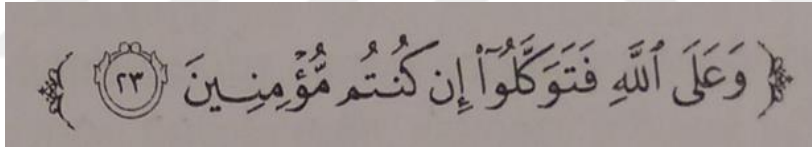 ﴿ وَعَلَى ٱللَّهِ فَتَوَكَّلُوٓا۟ إِن كُنتُم مُّؤْمِنِينَ ٢٣ ﴾